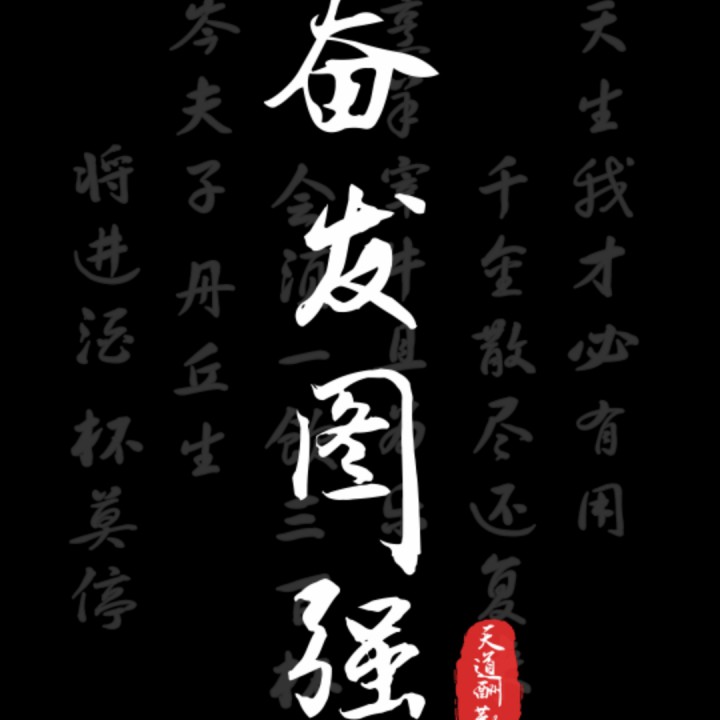 奋发图强
天生我才必有用
千金散尽还复
烹羊宰牛且为乐
会须一饮三百杯
岑夫子丹丘生
将进酒杯莫停
天道酬勤